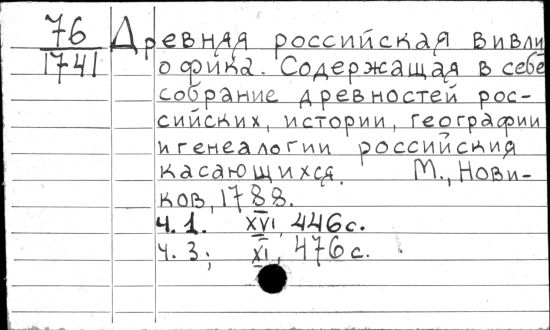 76
1741
Древняя российская вивли
офика. Содержащая в себе
собрание древностей рос-
сийских, истории, географии
и генеалогии российския
касающихся. М., Нови-
ков, 1788.
ч. 1. XVI, 446 с.
ч. 3; XI, 476 с.